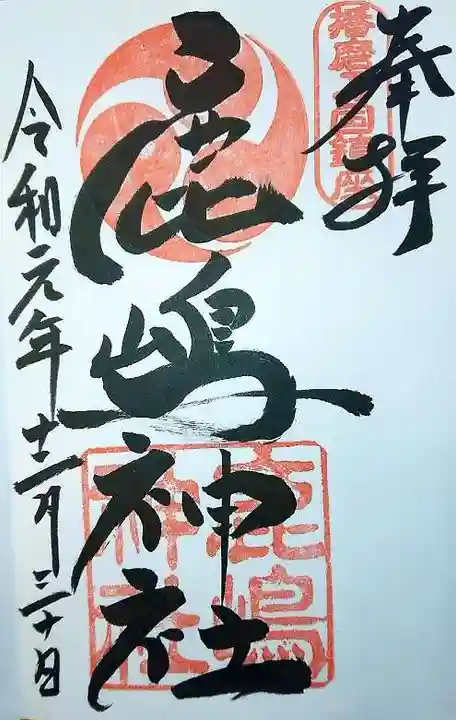 奉拝
播磨之国鎮座
鹿嶋神社
鹿嶋
神社
令和元年十二月三十日